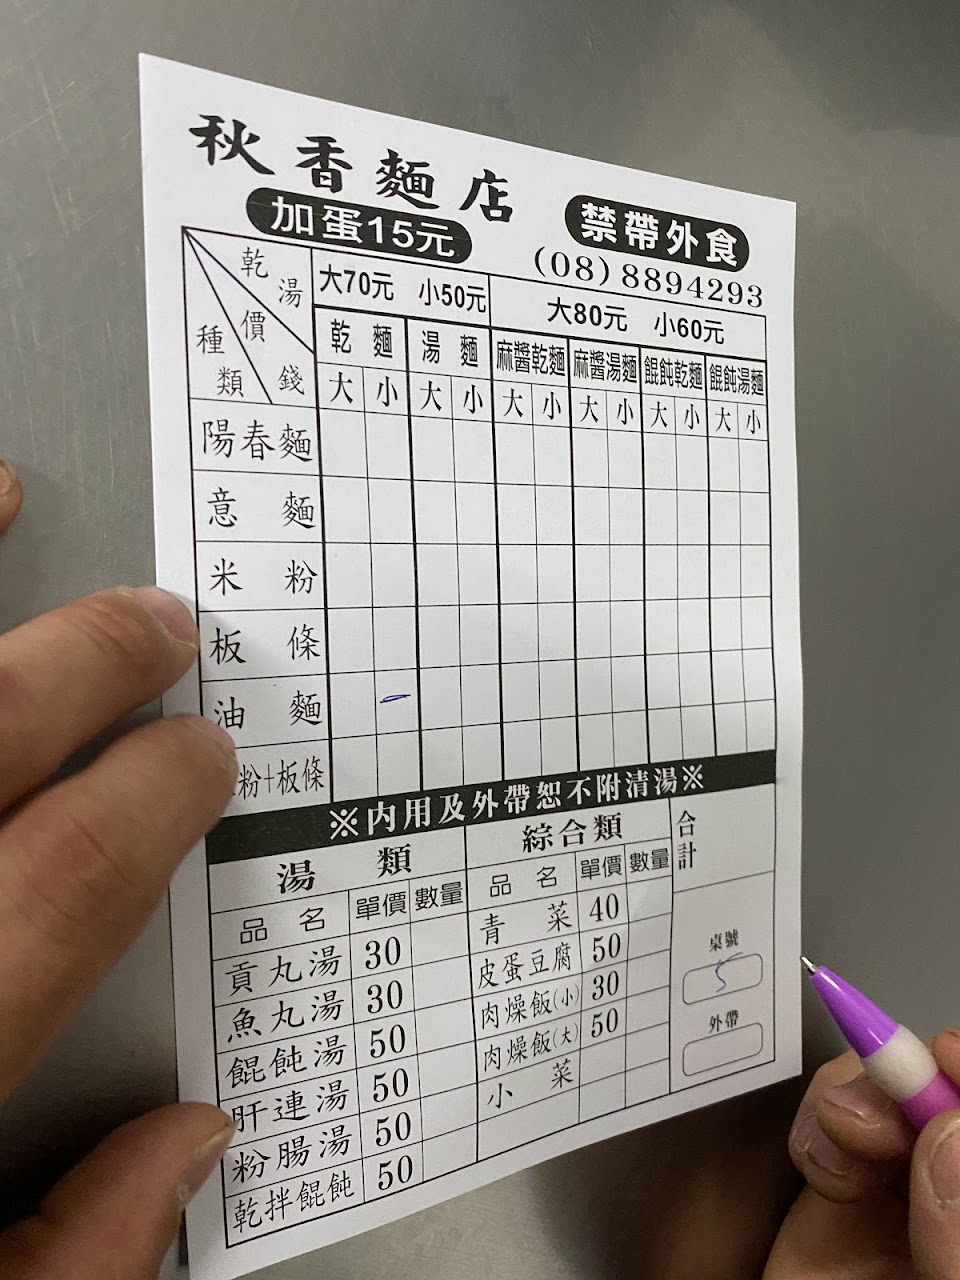 秋香麵店
加蛋15元 禁帶外食
(08) 8894293
乾湯 價錢 種類
大70元 小50元 大80元 小60元
乾麵 湯麵 麻醬乾麵 麻醬湯麵 餛飩乾麵 餛飩湯麵
大 小 大 小 大 小 大 小 大 小 大 小
陽春麵
意麵
米粉
板條
油麵
粉+板條
※內用及外帶恕不附清湯※
湯類
品名 單價 數量
貢丸湯 30
魚丸湯 30
餛飩湯 50
肝連湯 50
粉腸湯 50
乾拌餛飩 50
綜合類
品名 單價 數量
青菜 40
皮蛋豆腐 50
肉燥飯(小) 30
肉燥飯(大) 50
小菜
合計
桌號
5
外帶